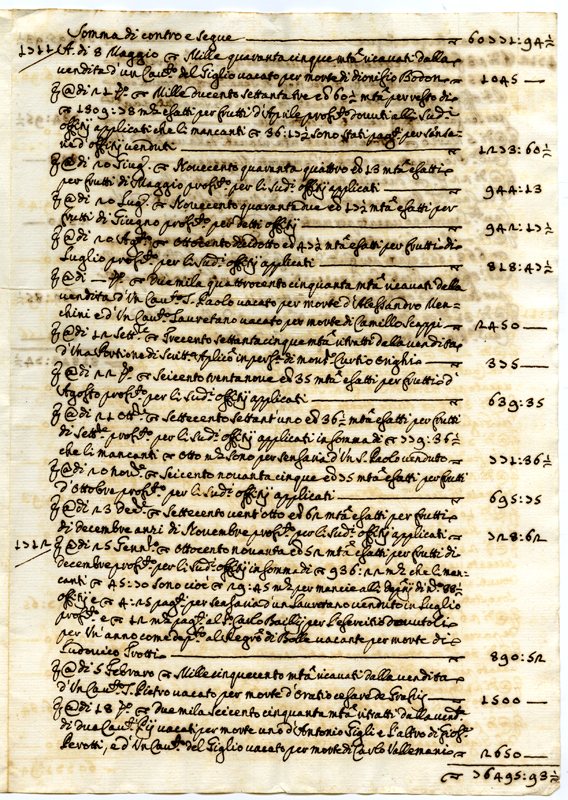 Somma di contro e segue 60331:94½
1711 A di 8 Maggio Mille quaranta cinque mta ricavati dalla
vendita d'un Caute. del Giglio vacato per morte di Dionisio Bodon 1045
E @ di 21 do. Mille ducento settanta tre ed 60½ mta per resto di
1309:78 mta esatti per frutti d'Aprile prosto. dovuti alli Sudi.
offitij applicati che li mancanti 36:17½ sono stati pagti. per sensa=
ria d'offitij venduti 1273:60½
E @ di 20 Giugo. Novecento quaranta quattro ed 13 mta esatti
per frutti di Maggio prosto. per li Sudi. offitij applicati 944:13
E @ di 20 Lugo. Novecento quaranta due ed 17½ mta esatti per
frutti di Giugno prosto. per detti offitij 942:17½
E @ di 20 Agto. Ottocento diciotto ed 47½ mta esatti per frutti di
Luglio prosto. per li Sudi. offitij applicati 818:47½
E @ di — do. Due mila quattrocento cinquanta mta ricavati dalla
vendita d'Un Caute. S. Paolo vacato per morte d'Alessandro Men=
chini e d'Un Caute. Lauretano vacato per morte di Camillo Scappi 2450
E @ di 12 Sette. Trecento settanta cinque mta ritratti dalla vendita
d'Una Portione di Scritte. Aplico in persa. di monr. Curtio Orighi 375
E @ di 22 do. Seicento trenta nove ed 35 mta esatti per frutti d
Agosto prosto. per li Sudi. offitij applicati 639:35
E @ di 21 Otte. Settecento settant'uno ed 36½ mta esatti per frutti
di Sette. prosto. per li Sudi. offitij applicati in somma di 779:36½
che li mancanti Otto mta sono per sensaria d'Un S. Paolo venduto 771:36½
E @ di 20 Nove. Seicento novanta cinque ed 35 mta esatti per frutti
d'Ottobre prosto. per li Sudi. offitij applicati 695:35
E @ di 23 Dece. Settecento vent'otto ed 62 mta esatti per frutti
di decembre anzi di Novembre prosto. per li Sudi. offitij applicati 728:62
1712 E @ di 25 Gennro. Ottocento novanta ed 52 mta esatti per frutti di
decembre prosto. per li Sudi. offitij in somma di 936:22 mta che li man=
canti 45:70 sono cioè 29:45 mta per mancie alli
offitij e 4:25 pagti. per sensaria d'un Lauretano venduto in Luglio
prosto. e 12 mta pagti. al Sr. Carlo Bailij per l'esercitio dovutoli
per Un'anno come depto. al Regro. di Bolle vacante per morte di
Ludovico Trotti 890:52
E @ di 5 Febraro Mille cinquecento mta ricavati dalla vendita
d'Un Caute. S. Pietro vacato per morte d'Oratio Cesare de Grassis 1500
E @ di 18 do. due mila seicento cinquanta mta ritratti dalla vendta.
di due Cauti. Pij vacati per morte uno d'Antonio Gigli e l'altro di Giose.
Perotti, e d'Un Caute. del Giglio vacato per morte di Carlo Vallemani 2650
76495:93½